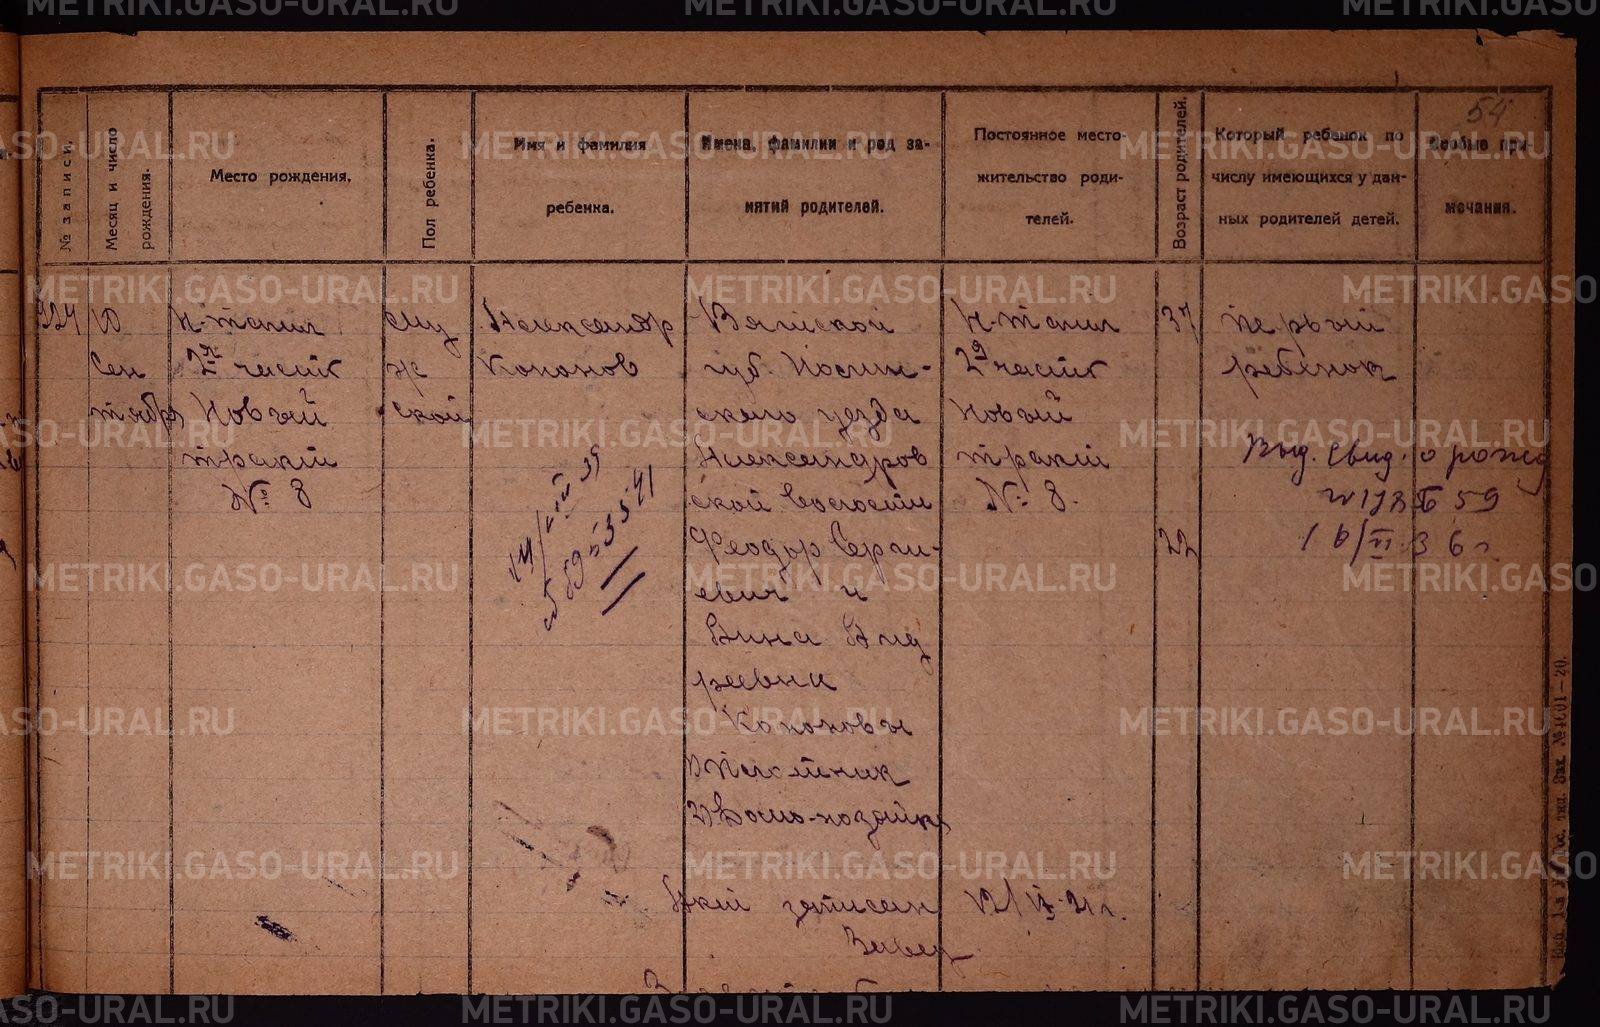 54
№ записи.
Месяц и число рождения.
Место рождения.
Пол ребенка.
Имя и фамилия
ребенка.
Имена, фамилии и род за-
нятий родителей.
Постоянное место-
жительство роди-
телей.
Возраст родителей.
Который ребенок по
числу имеющихся у дан-
ных родителей детей.
Особые при-
мечания.
924
10
Сен
тября
Н-Тагил
2я часть
Новый
тракт
№ 8
Му
ж
ской
Александр
Кононов
Вятской
губ. Нолин-
ского уезда
Александров
ской волости
Феодор Серги-
евич и
Анна Анд
реевна
Кононовы
1) Плотник
2) Домо-хозяйка
Н-Тагил
2я часть
Новый
тракт
№ 8.
37
22
первый
ребенок
Выд. Свид. о рожд
59
16/VI 36 г.
14/VIII 35
Акт записан 12/IX-21 г.
Завед
METRIKI.GASO-URAL.RU